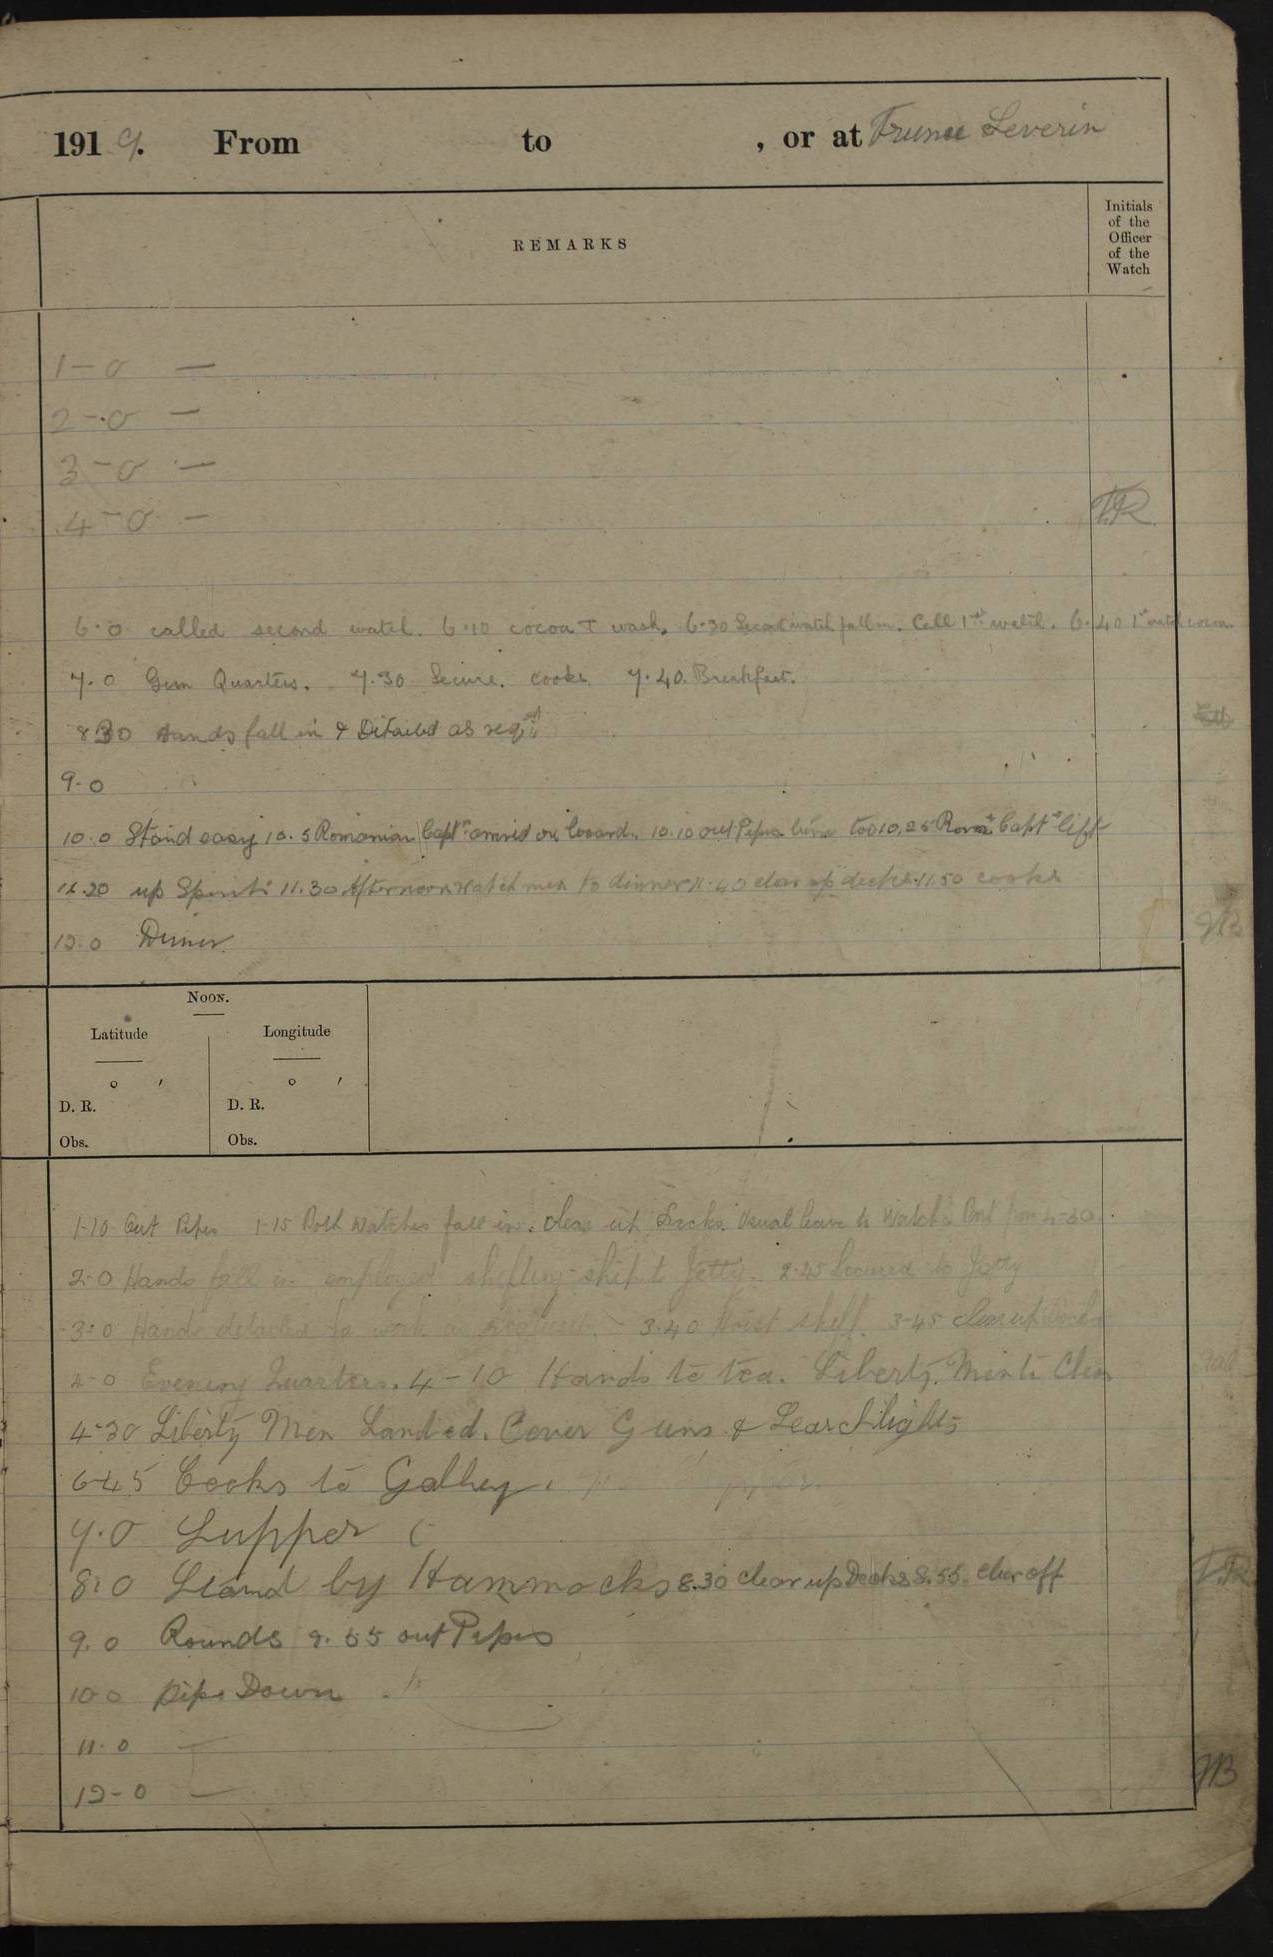 1919. From to , or at Turnu Severin
REMARKS
Initials
of the
Officer
of the
Watch
1-0 —
2-0 —
3-0 —
4-0 —
6.0 called second watch. 6.10 cocoa & wash. 6.30 Second watch fall in. Call 1st watch. 6.40 1st watch cocoa.
7.0 Gun Quarters. 7.30 Secure. cooks 7.40. Breakfast.
830 Hands fall in & Detailed as reqd
9.0
10.0 Stand easy 10.5 Romanian Captn arrived on board. 10.10 out Pipes 10.25 Captn left
11.20 up Spirits 11.30 Afternoon watch men to dinner 11.40 clear up decks 11.50 cooks
JB
12.0 Dinner.
NOON.
Latitude Longitude
° ′ ° ′
D. R. D. R.
Obs. Obs.
1-10 Out Pipes 1-15 Both Watches fall in. clear up Decks. Usual leave to Watch from 4-30.
2-0 Hands fall in employed shifting ship to Jetty. 2.45 Secured to Jetty
3-0 Hands detailed for work as requisite. 3.40 3-45 clear up Decks
4-0 Evening Quarters. 4-10 Hands to tea. Liberty Men to Clean
4-30 Liberty Men Landed. Cover Guns & Searchlights
6-45 Cooks to Galley.
7.0 Supper
8.0 Stand by Hammocks 8.30 clear up Decks 8.55 clear off
9.0 Rounds 9.55 out Pipes
10 0 pipe Down
11.0 —
12-0 —
JB